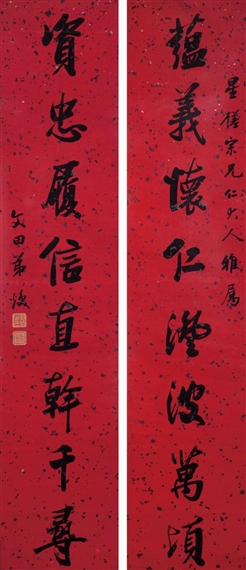 星 宗兄仁大人雅屬
蘊義懷仁澄波萬頃
資忠履信直幹千尋
文田弟